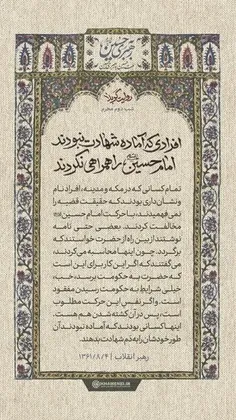 روایت گونه
شب دوم محرم
افرادی که آماده شهادت نبودند
امام حسین را همراهی نکردند
تمام کسانی که در مکه و مدینه، افراد نام
و نشان‌داری بودند که حقیقت قضیه را
نمی‌فهمیدند، با حرکت امام حسین (ع)
مخالفت کردند. بعضی حتی نامه
نوشتند از بین راه از حضرت خواستند که
برگردد. چون اینها محاسبه می‌کردند،
می‌گفتند که اگر این کار برای این است
که حضرت به حکومت برسد، خب،
خیلی شرایط به حکومت رسیدن مفقود
است. و اگر نفس این حرکت مطلوب
است، پس در آن کشته شدن هم هست.
اینها کسانی بودند که آماده نبودند آن
طور خودشان را به دم شهادت بدهند.
رهبر انقلاب | ۱۳۶۱/۸/۴